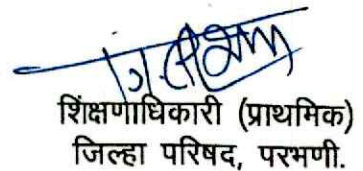 शिक्षणाधिकारी (प्राथमिक)
जिल्हा परिषद, परभणी.